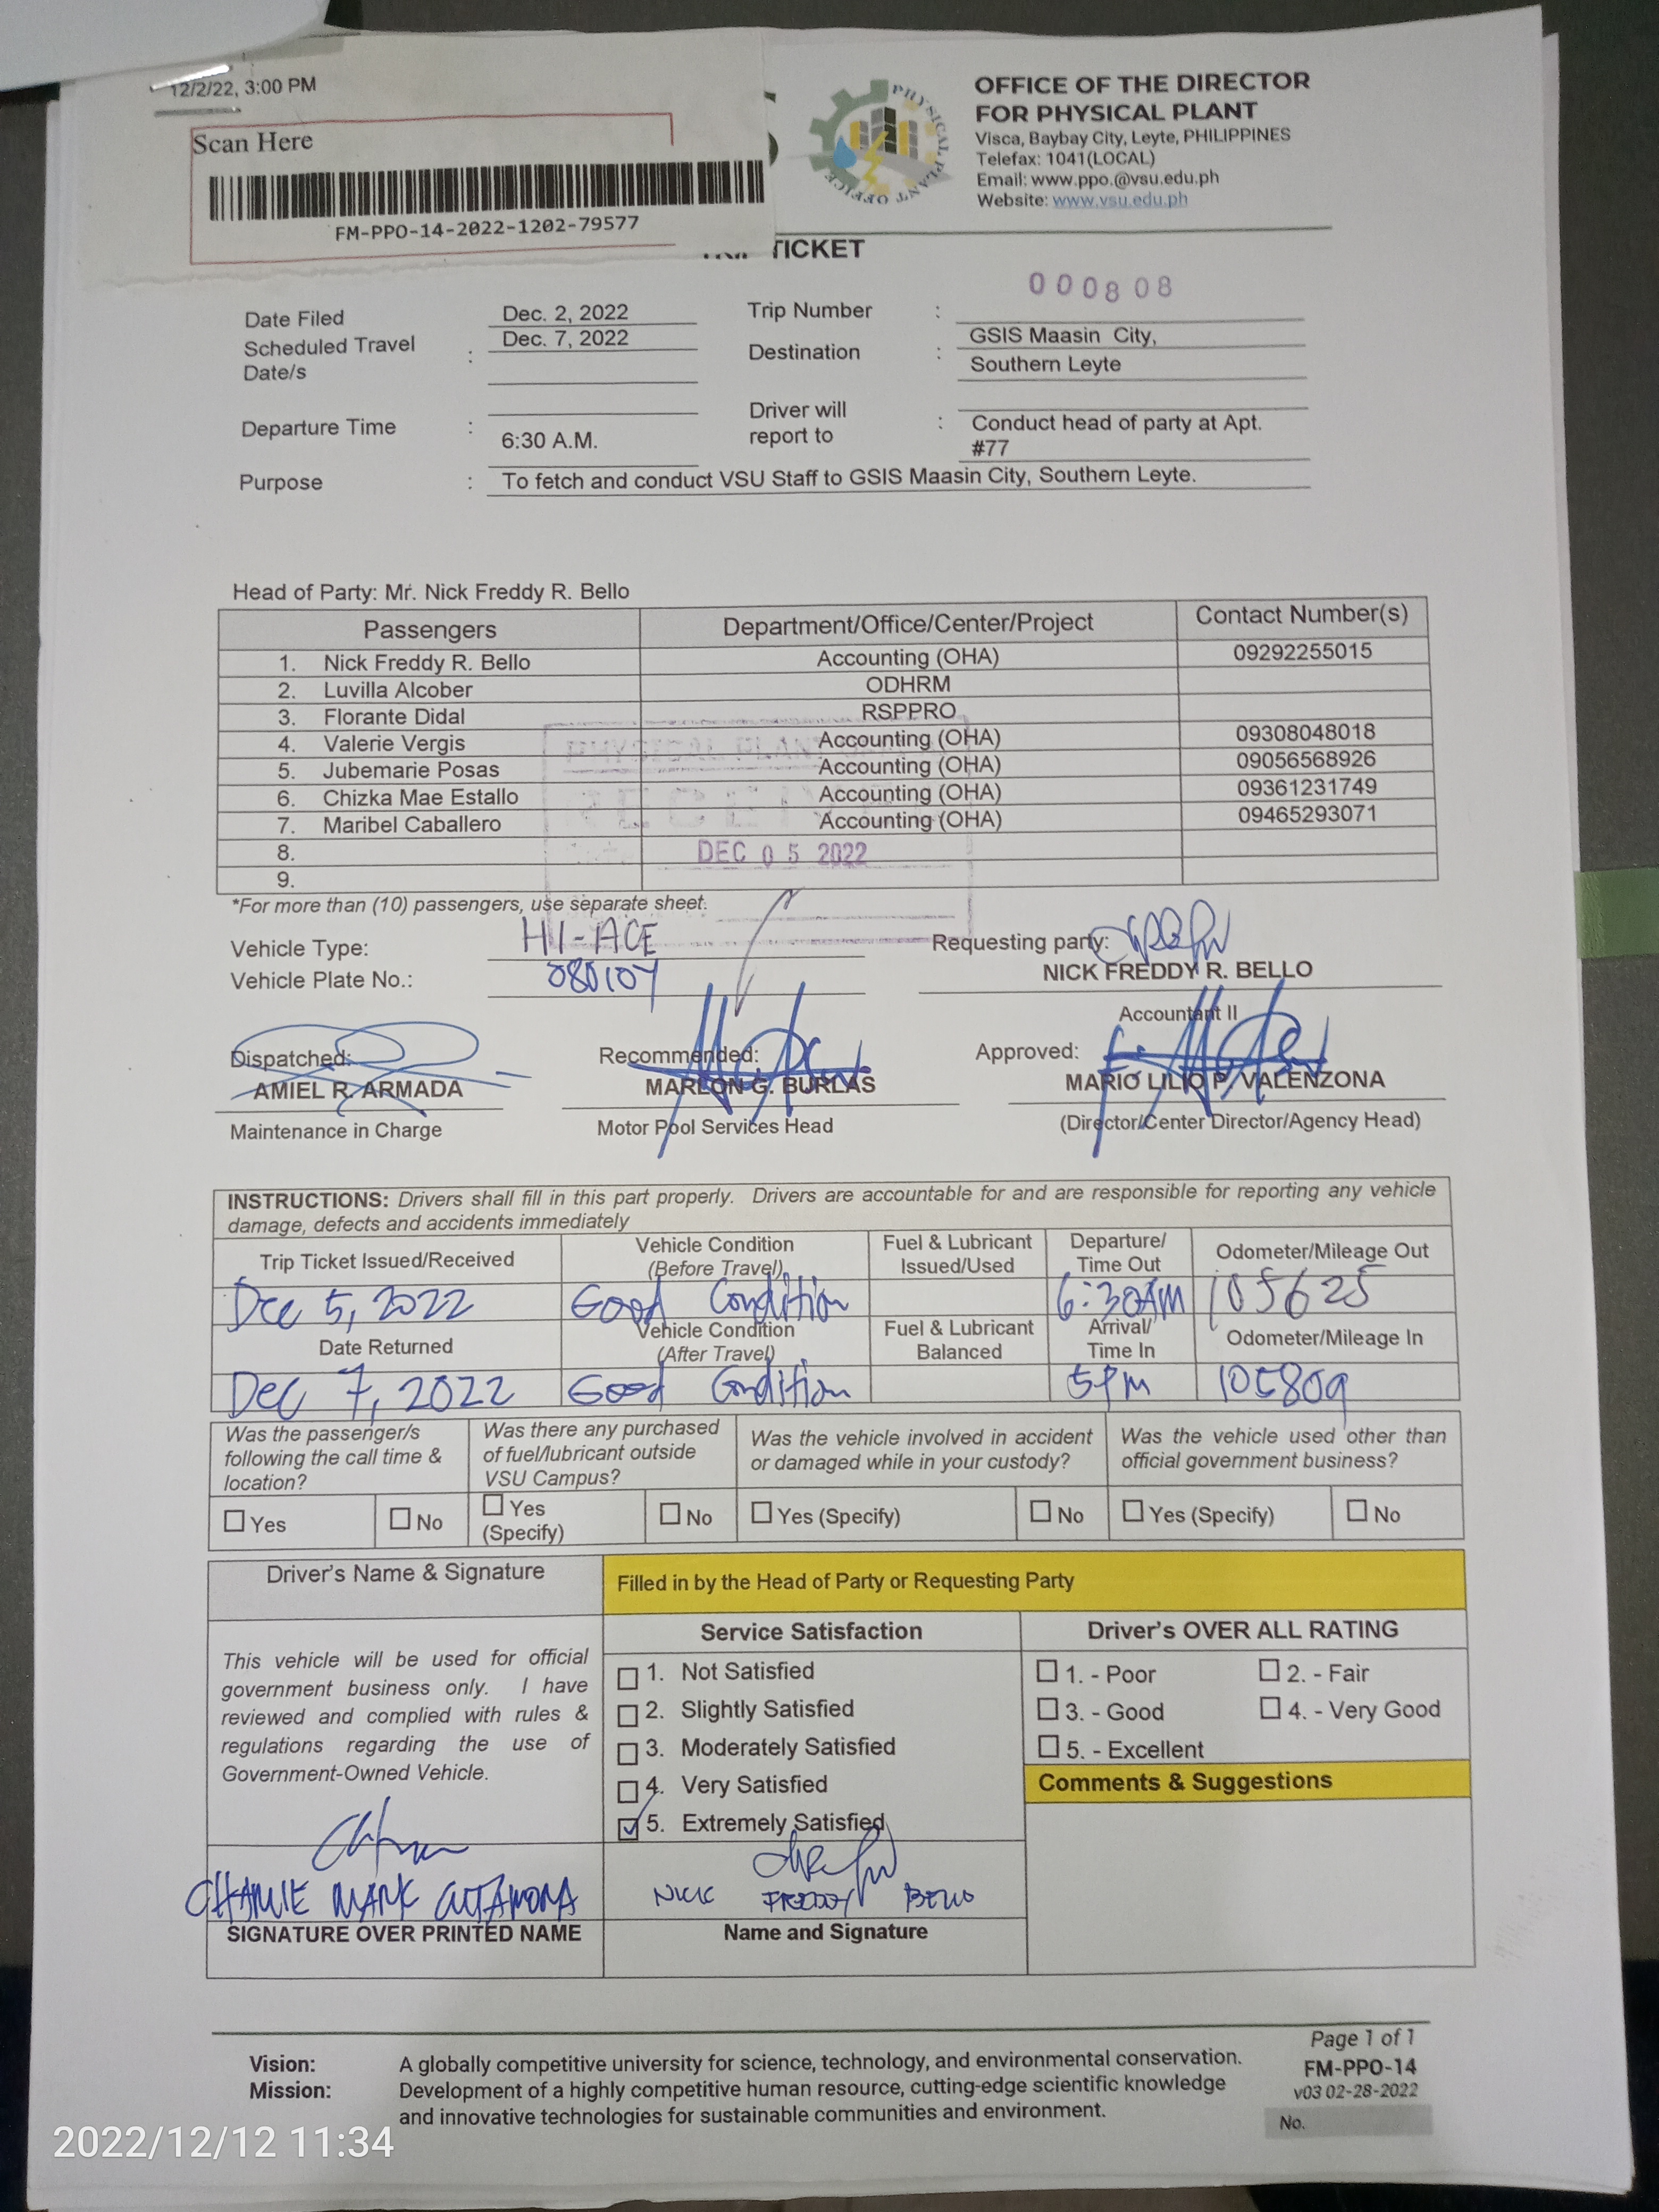 12/2/22, 3:00 PM
Scan Here
FM-PPO-14-2022-1202-79577
PHYSICAL PLANT OFFICE
OFFICE OF THE DIRECTOR
FOR PHYSICAL PLANT
Visca, Baybay City, Leyte, PHILIPPINES
Telefax: 1041(LOCAL)
Email: www.ppo.@vsu.edu.ph
Website: www.vsu.edu.ph
TICKET
000808
Date Filed Dec. 2, 2022 Trip Number :
Scheduled Travel Date/s : Dec. 7, 2022
Destination : GSIS Maasin City,
Southern Leyte
Departure Time : 6:30 A.M.
Driver will report to : Conduct head of party at Apt.
#77
Purpose : To fetch and conduct VSU Staff to GSIS Maasin City, Southern Leyte.
Head of Party: Mr. Nick Freddy R. Bello
Passengers Department/Office/Center/Project Contact Number(s)
1. Nick Freddy R. Bello Accounting (OHA) 09292255015
2. Luvilla Alcober ODHRM
3. Florante Didal RSPPRO
4. Valerie Vergis Accounting (OHA) 09308048018
5. Jubemarie Posas Accounting (OHA) 09056568926
6. Chizka Mae Estallo Accounting (OHA) 09361231749
7. Maribel Caballero Accounting (OHA) 09465293071
8.
DEC 05 2022
9.
*For more than (10) passengers, use separate sheet.
Vehicle Type: HI-ACE
Vehicle Plate No.: 080107
Requesting party:
NICK FREDDY R. BELLO
Accountant II
Dispatched: Recommended: Approved:
AMIEL R. ARMADA MARLON G. BURLAS MARIO LILIO P. VALENZONA
Maintenance in Charge Motor Pool Services Head (Director/Center Director/Agency Head)
INSTRUCTIONS: Drivers shall fill in this part properly. Drivers are accountable for and are responsible for reporting any vehicle
damage, defects and accidents immediately
Trip Ticket Issued/Received Vehicle Condition (Before Travel) Fuel & Lubricant Issued/Used Departure/ Time Out Odometer/Mileage Out
Dec 5, 2022 Good Condition 6:30AM 105625
Date Returned Vehicle Condition (After Travel) Fuel & Lubricant Balanced Arrival/ Time In Odometer/Mileage In
Dec 7, 2022 Good Condition 5PM 105809
Was the passenger/s
following the call time &
location?
Was there any purchased
of fuel/lubricant outside
VSU Campus?
Was the vehicle involved in accident
or damaged while in your custody?
Was the vehicle used other than
official government business?
☐ Yes ☐ No ☐ Yes (Specify) ☐ No ☐ Yes (Specify) ☐ No ☐ Yes (Specify) ☐ No
Driver's Name & Signature
Filled in by the Head of Party or Requesting Party
This vehicle will be used for official
government business only. I have
reviewed and complied with rules &
regulations regarding the use of
Government-Owned Vehicle.
Service Satisfaction
☐ 1. Not Satisfied
☐ 2. Slightly Satisfied
☐ 3. Moderately Satisfied
☐ 4. Very Satisfied
☑ 5. Extremely Satisfied
Driver's OVER ALL RATING
☐ 1. - Poor ☐ 2. - Fair
☐ 3. - Good ☐ 4. - Very Good
☐ 5. - Excellent
Comments & Suggestions
MARK
SIGNATURE OVER PRINTED NAME
NICK FREDDY BELLO
Name and Signature
Page 1 of 1
FM-PPO-14
v03 02-28-2022
No.
Vision: A globally competitive university for science, technology, and environmental conservation.
Mission: Development of a highly competitive human resource, cutting-edge scientific knowledge
and innovative technologies for sustainable communities and environment.
2022/12/12 11:34